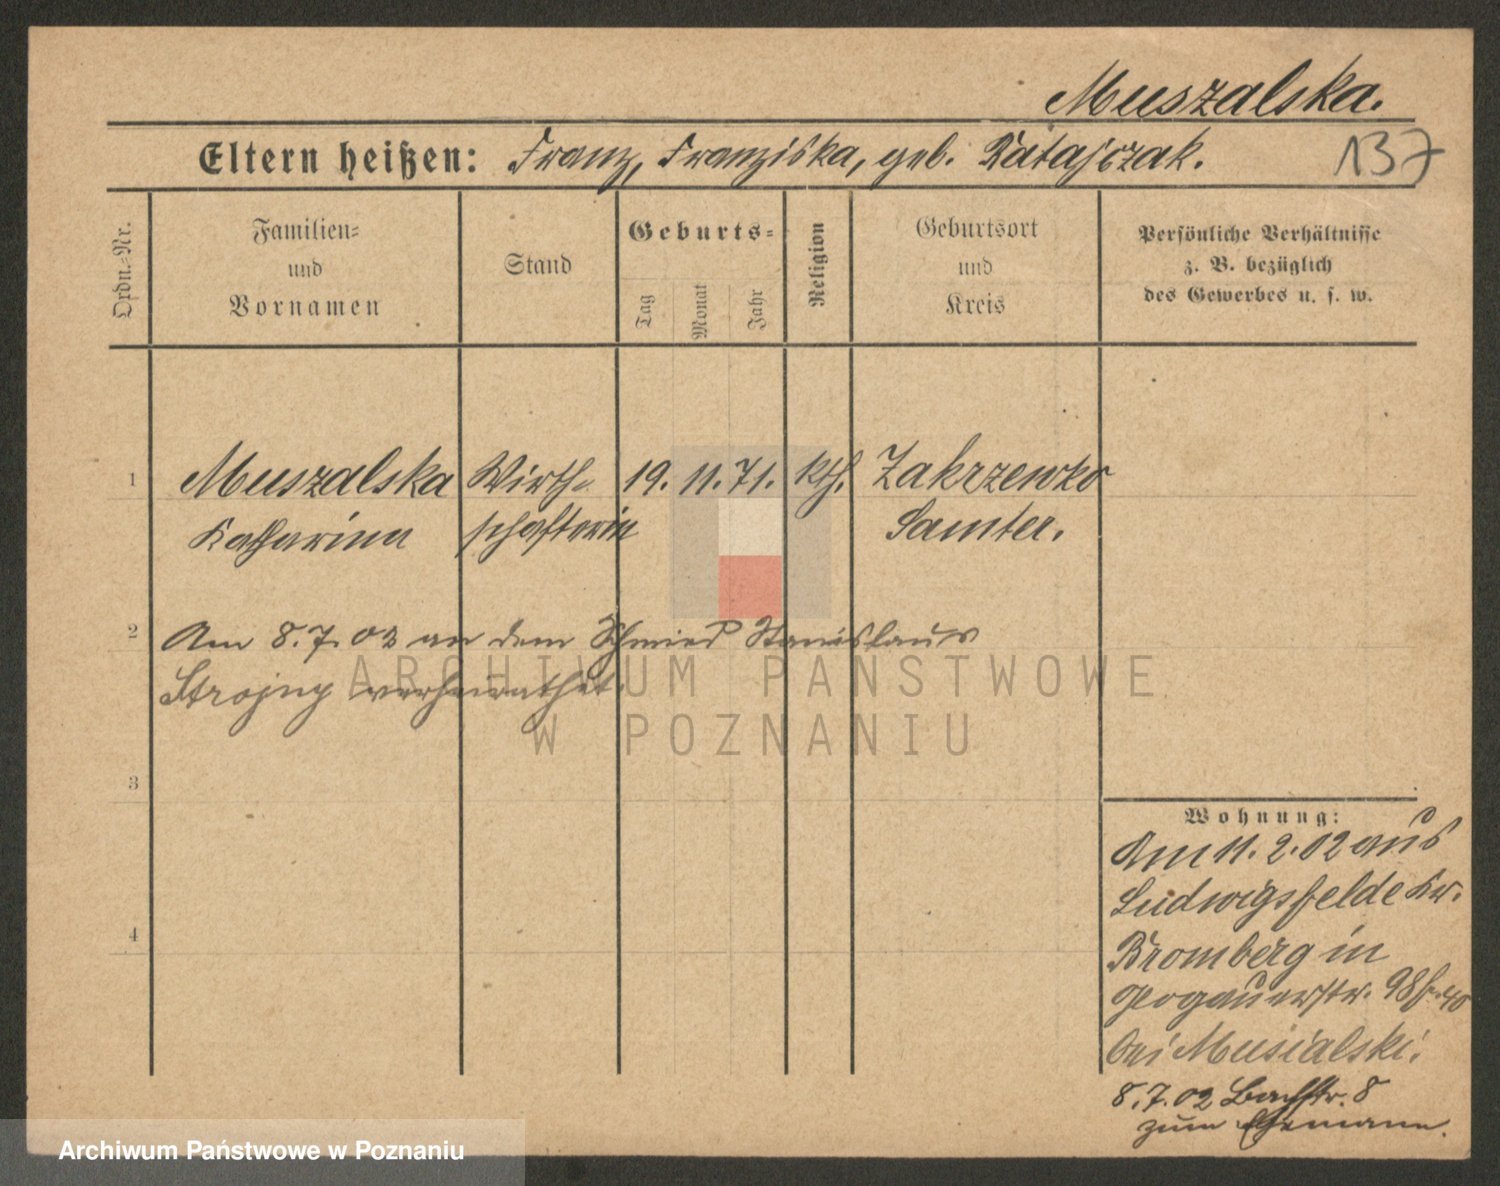 Muszalska.
Eltern heißen: Franz, Franziska, geb. Ratajczak.
137
Ordn.-Nr.
Familien-
und
Vornamen
Stand
Geburts-
Tag
Monat
Jahr
Religion
Geburtsort
und
Kreis
Persönliche Verhältnisse
z. B. bezüglich
des Gewerbes u. s. w.
1 Muszalska Wirth- 19. 11. 71. kth. Zakrzewko
Katharina schafterin Samter.
2 Am 8.7.02 an dem Schmied Stanislaus
Strojny verheirathet.
ARCHIWUM PAŃSTWOWE
W POZNANIU
3
4
Wohnung:
Am 11.2.02 aus
Ludwigsfelde Kr.
Bromberg in
Glogauerstr. 98
bei Musialski.
8.7.02 Bachstr. 8
zum Ehemann.
Archiwum Państwowe w Poznaniu